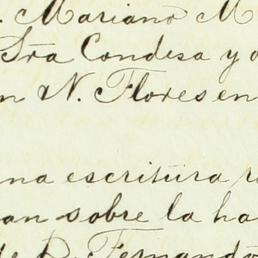 . Mariano M
Sra Condesa y
n N. Flores en
na escritura
an sobre la ha
de D. Fernando